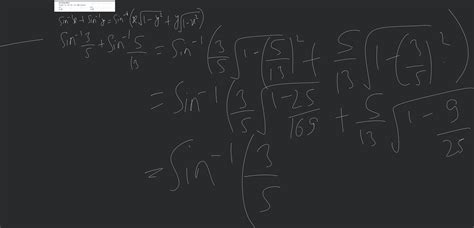 sin⁻¹x + sin⁻¹y = sin⁻¹(x√(1-y²) + y√(1-x²))
sin⁻¹ 3/5 + sin⁻¹ 5/13 = sin⁻¹(3/5 √(1-(5/13)²) + 5/13 √(1-(3/5)²)
= sin⁻¹(3/5 √(1-25/169) + 5/13 √(1-9/25)
= sin⁻¹(3/5